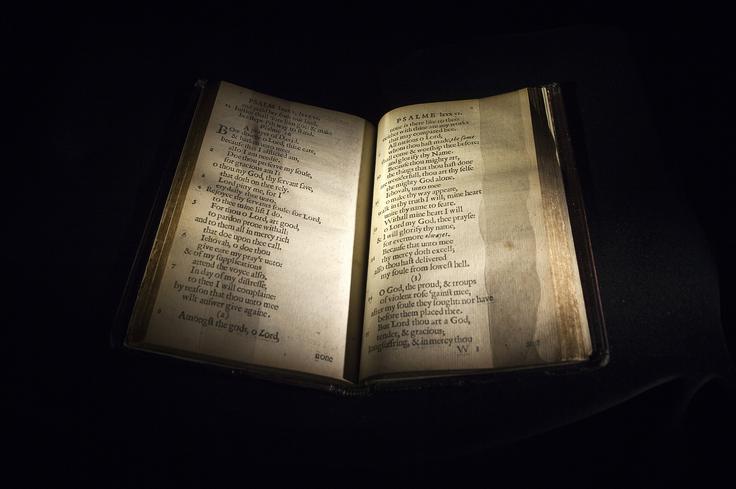 PSALM lxxxv, lxxxvi.
& make
Psalme 86
Bow downe o Lord, thine eare,
& 
because I am
afflicted am,
also I am needie.
2 Doe thou preserve my soule,
for gracious am I:
o thou my God, thy servant save,
that doth on thee rely.
Lord pitty me, for I
cry unto thee
4 Rejoyce thy servants soule: for Lord,
to thee mine lift I do.
5 For thou o Lord, art good,
to pardon prone withall:
and to them all in mercy rich
that doe upon thee call.
6 Iehovah, o doe thou
give eare my pray'r unto:
& of my supplications
attend the voyce also.
7 In day of my distresse,
to thee I will complaine:
by reason that thou unto mee
wilt answer give againe.
(2)
8 Amongst the gods, o Lord,
none
PSALME lxxxvi.
none is there like to thee:
neither with thine are any works
that may compared bee.
All nations o Lord,
whom thou hast made, the same
shall come & worship thee before:
and glorify thy Name.
Because thou mighty art,
the things that thou hast done
are wonderfull, thou art thy selfe
the mighty God alone.
Iehovah, unto mee
o make thy way appeare,
walk in thy truth I will; mine heart
unite thy name to feare.
Withall mine heart I will
o Lord my God, thee prayse:
& I will glorify thy name,
for evermore alwayes.
Because that unto mee
thy mercy doth excell;
also thou hast delivered
my soule from lowest hell.
(3)
O God, the proud, & troups
of violent rose 'gainst mee,
after my soule they sought: nor have
before them placed thee.
But Lord thou art a God,
tender, & gracious;
long-suffring, & in mercy thou
W